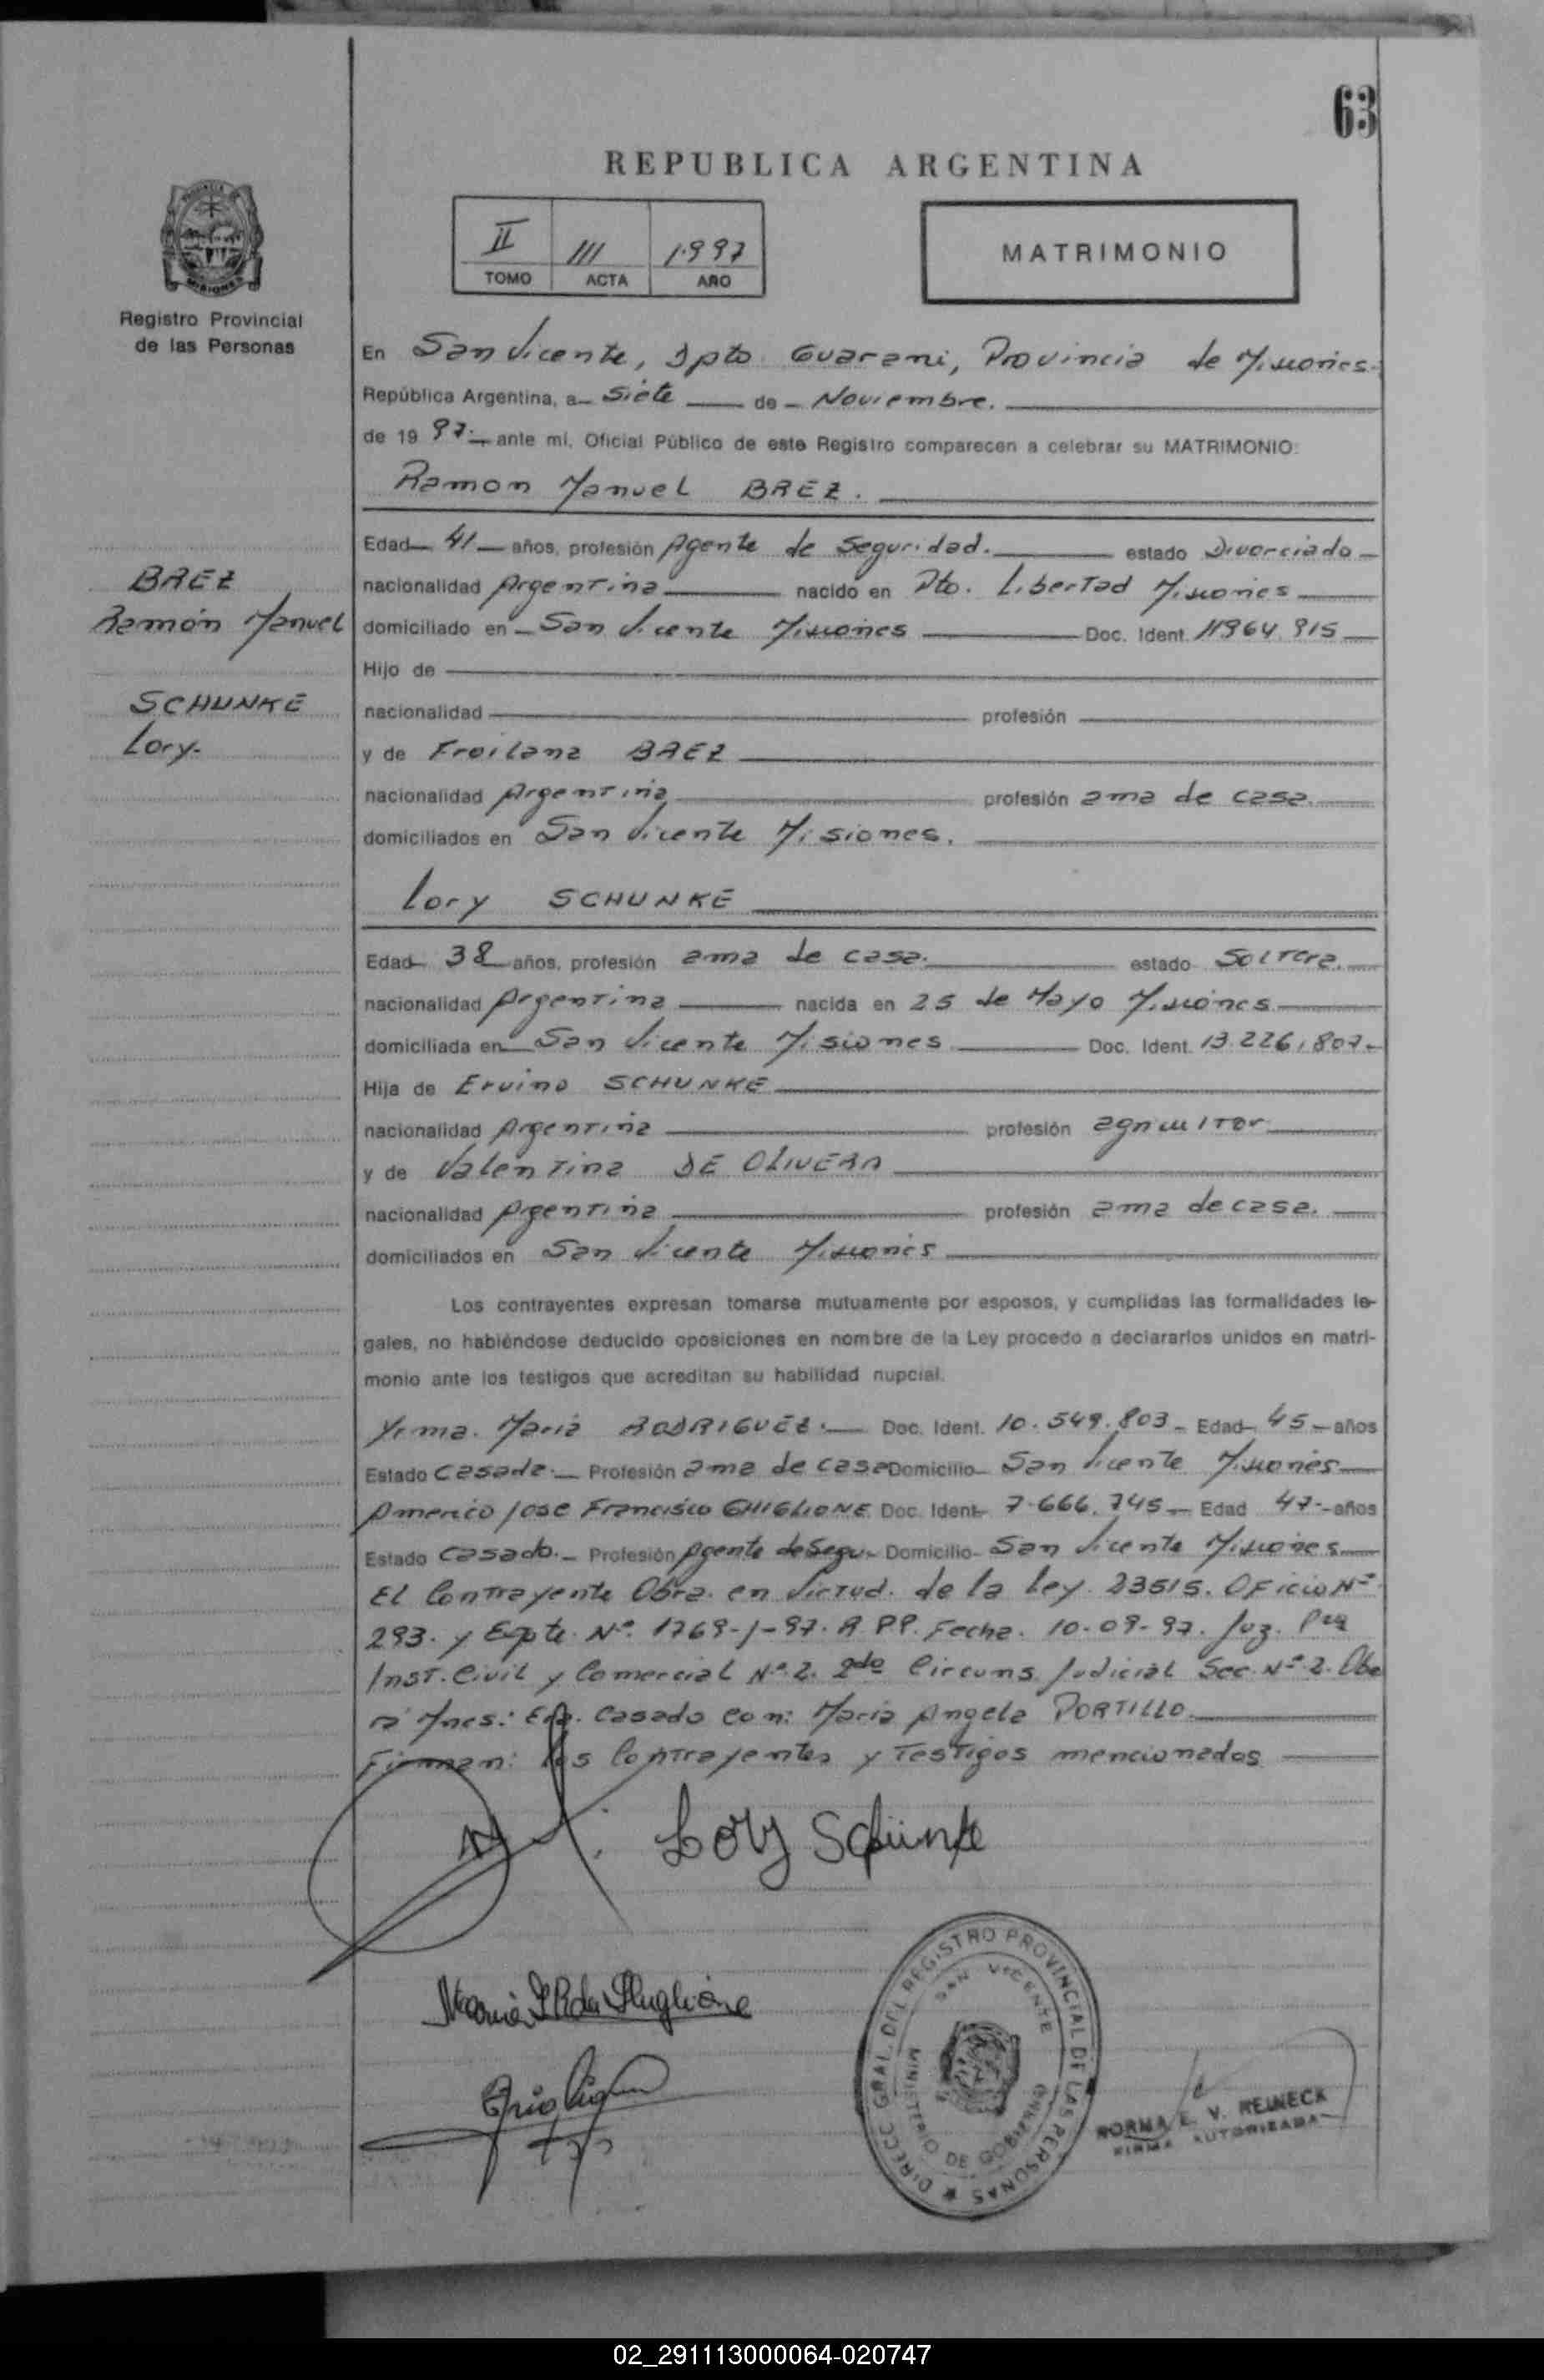 63
REPUBLICA ARGENTINA
II III 1.997
TOMO ACTA AÑO
MATRIMONIO
MISIONES
Registro Provincial
de las Personas
En San Vicente, Dpto Guarani, Provincia de Misiones.
República Argentina, a Siete de Noviembre.
de 19 97. ante mí, Oficial Público de este Registro comparecen a celebrar su MATRIMONIO:
Ramon Manuel BAEZ.
Edad 41 años, profesión Agente de Seguridad. estado Divorciado
nacionalidad Argentina nacido en Pto. Libertad Misiones
domiciliado en San Vicente Misiones Doc. Ident. 11964.915
Hijo de
nacionalidad profesión
y de Froilana BAEZ
nacionalidad Argentina profesión ama de casa.
domiciliados en San Vicente Misiones.
BAEZ
Ramón Manuel
SCHUNKE
Lory.
Lory SCHUNKE
Edad 38 años, profesión ama de casa. estado Soltera.
nacionalidad Argentina nacida en 25 de Mayo Misiones
domiciliada en San Vicente Misiones Doc. Ident. 13.226.807
Hija de Ervino SCHUNKE
nacionalidad Argentina profesión agricultor
y de Valentina DE OLIVERA
nacionalidad Argentina profesión ama de casa.
domiciliados en San Vicente Misiones
Los contrayentes expresan tomarse mutuamente por esposos, y cumplidas las formalidades le-
gales, no habiéndose deducido oposiciones en nombre de la Ley procedo a declararlos unidos en matri-
monio ante los testigos que acreditan su habilidad nupcial.
Yrma. Maria RODRIGUEZ. Doc. Ident. 10.549.803 Edad 45 años
Estado Casada. Profesión ama de casa Domicilio San Vicente Misiones
Americo Jose Francisco GHIGLIONE Doc. Ident. 7.666.745 Edad 47 años
Estado Casado. Profesión Agente de Segu Domicilio San Vicente Misiones
El Contrayente Obra. en Virtud. de la Ley. 23515. Oficio Nº
293. y Expte. Nº. 1769-J-97. R.P.P. Fecha. 10-09-97. Juz.
Inst. Civil y Comercial Nº.2. 2da Circuns. Judicial Sec. Nº.2. Obe
ra Mnes.: Era. Casado con: Maria Angela PORTILLO.
Firman: los Contrayentes y Testigos mencionados
Lory Schünke
DIRECC. GRAL. DEL REGISTRO PROVINCIAL DE LAS PERSONAS
SAN VICENTE
MINISTERIO DE GOBIERNO
NORMA E. V. REINECK
FIRMA AUTORIZADA
02_291113000064-020747